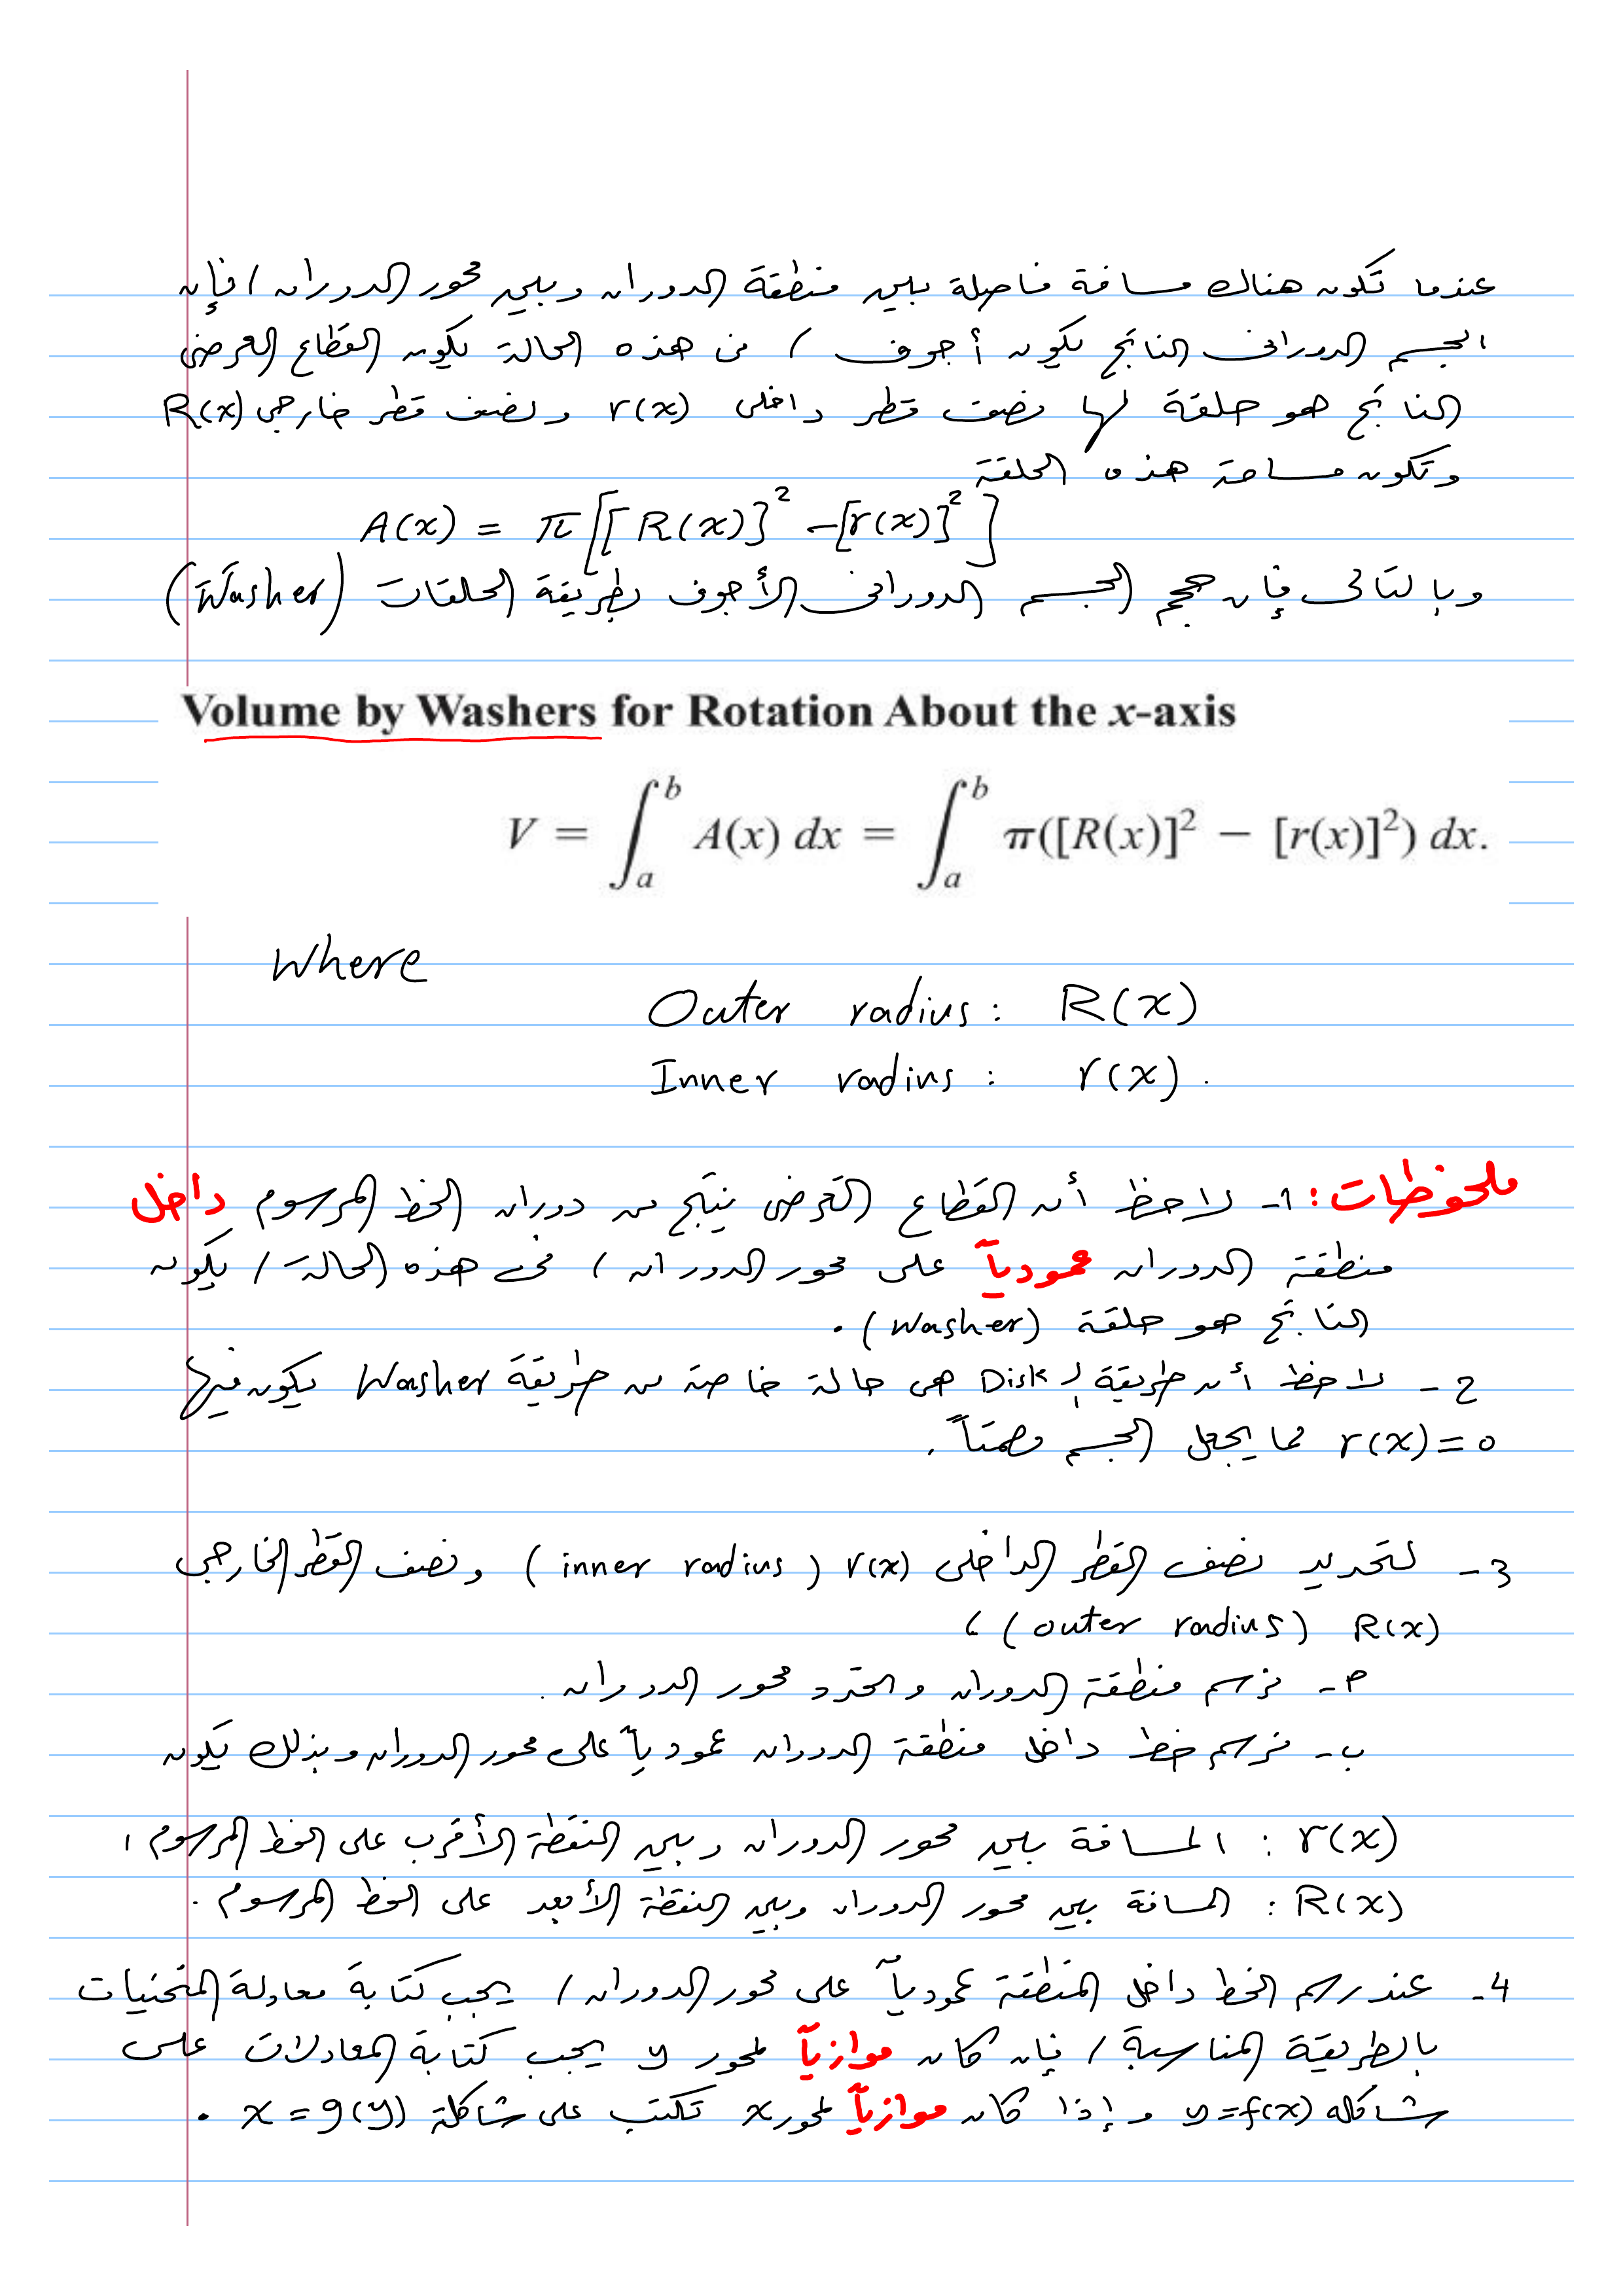 عندما تكون هناك مسافة فاصلة بين منطقة الدوران وبين محور الدوران ، فإن
الجسم الدوراني الناتج يكون أجوف ، في هذه الحالة يكون القطاع العرضي
الناتج هو حلقة لها نصف قطر داخلي r(x) ونصف قطر خارجي R(x)
وتكون مساحة هذه الحلقة
A(x) = π[[R(x)]² - [r(x)]²]
وبالتالي فإن حجم الجسم الدوراني الأجوف بطريقة الحلقات (Washer)
Volume by Washers for Rotation About the x-axis
V = ∫_a^b A(x) dx = ∫_a^b π([R(x)]² − [r(x)]²) dx.
Where
Outer radius: R(x)
Inner radius: r(x).
ملحوظات: 1- لاحظ أن القطاع العرضي ينتج من دوران الخط المرسوم داخل
منطقة الدوران عمودياً على محور الدوران ، في هذه الحالة ، يكون
الناتج هو حلقة (washer).
2- لاحظ أن طريقة الـ Disk هي حالة خاصة من طريقة Washer يكون فيها
r(x)=0 مما يجعل الجسم مصمتاً.
3- لتحديد نصف القطر الداخلي r(x) (inner radius) ونصف القطر الخارجي
R(x) (outer radius) ،
م- نرسم منطقة الدوران والحدد محور الدوران.
ب- نرسم خط داخل منطقة الدوران عمودياً على محور الدوران وبذلك يكون
r(x) : المسافة بين محور الدوران وبين النقطة الأقرب على الخط المرسوم ،
R(x) : المسافة بين محور الدوران وبين النقطة الأبعد على الخط المرسوم.
4- عند رسم الخط داخل المنطقة عمودياً على محور الدوران ، يجب كتابة معادلة المنحنيات
بالطريقة المناسبة ، فإن كان موازياً لمحور y يجب كتابة المعادلات على
شاكله y=f(x) وإذا كان موازياً لمحور x تكتب على شاكلة x=g(y) .